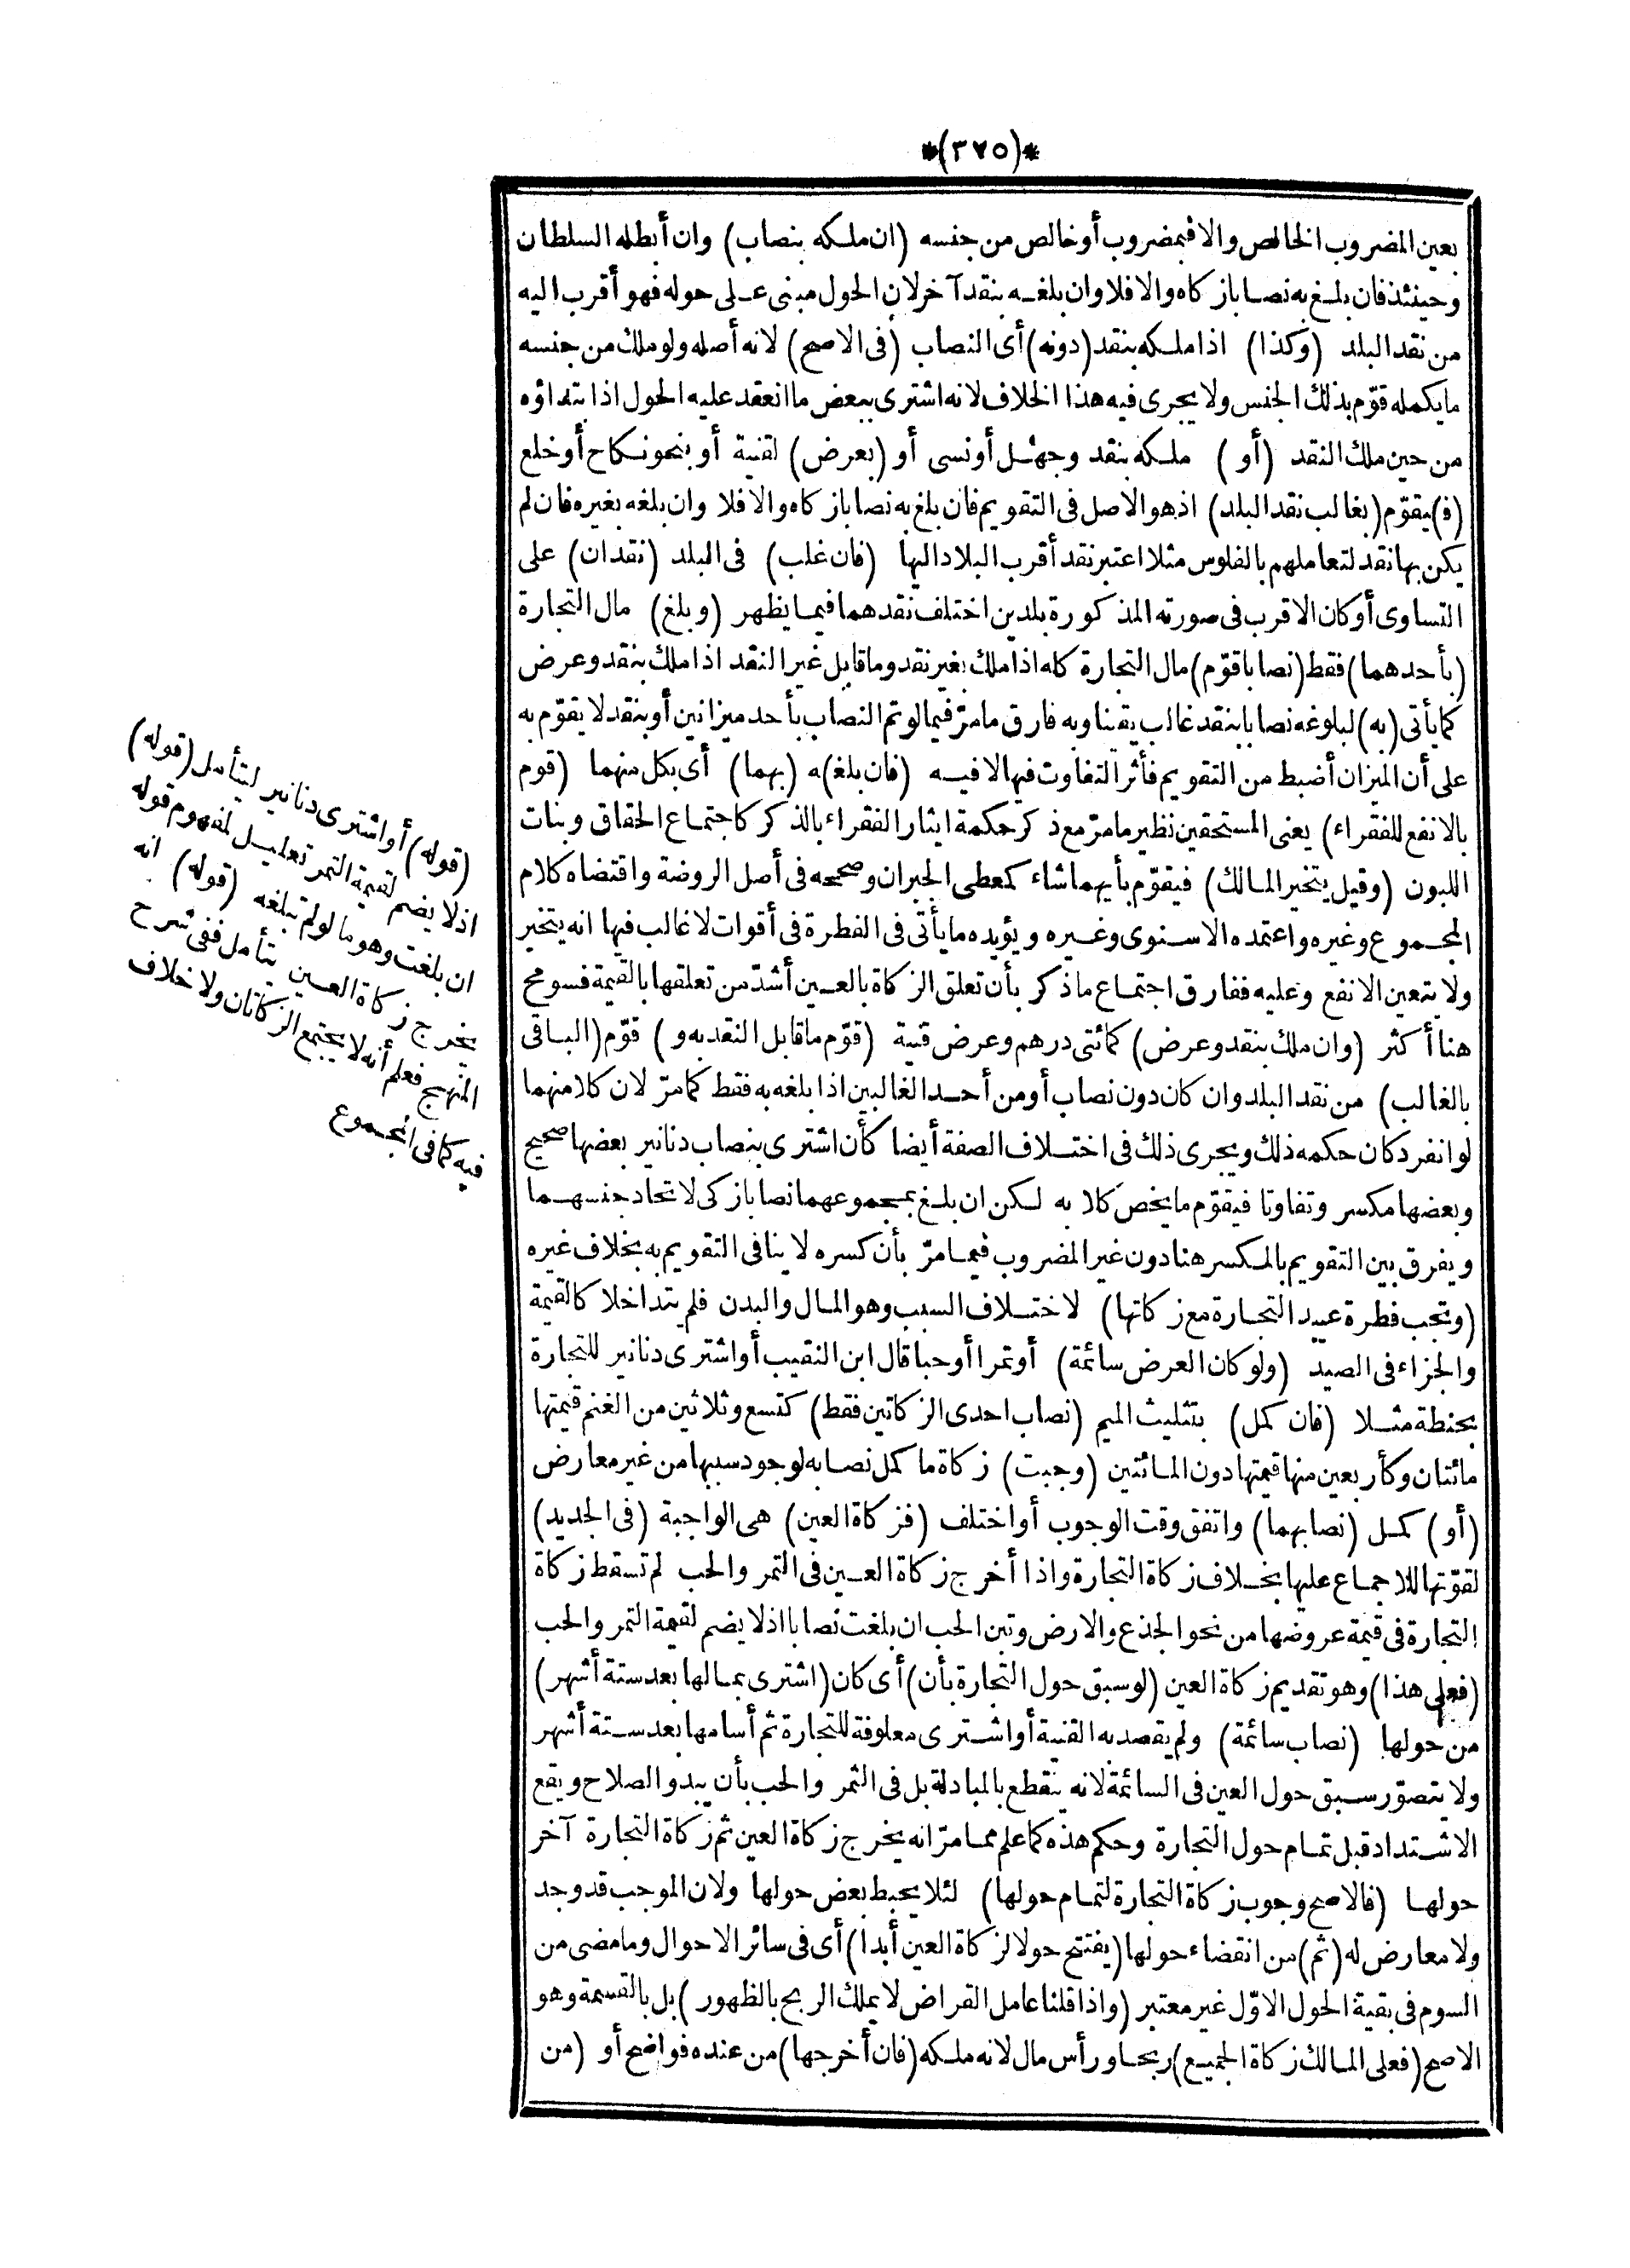 *(٣٧٥)*
بعين المضروب الخالص والا فبمضروب أو خالص من جنسه (ان ملكه بنصاب) وان أبطله السلطان
وحينئذ فان بلغ به نصابا زكاه والا فلا وان بلغه بنقد آخر لان الحول مبنى على حوله فهو أقرب اليه
من نقد البلد (وكذا) اذا ملكه بنقد (دونه) أى النصاب (فى الاصح) لانه أصله ولو ملك من جنسه
ما يكمله قوّم بذلك الجنس ولا يجرى فيه هذا الخلاف لانه اشترى ببعض ما انعقد عليه الحول اذ ابتداؤه
من حين ملك النقد (أو) ملكه بنقد وجهل أو نسى أو (بعرض) لقنية أو بنحو نكاح أو خلع
(ف) يقوّم (بغالب نقد البلد) اذ هو الاصل فى التقويم فان بلغ به نصابا زكاه والا فلا وان بلغه بغيره فان لم
يكن بها نقد لتعاملهم بالفلوس مثلا اعتبر نقد أقرب البلاد اليها (فان غلب) فى البلد (نقدان) على
التساوى أو كان الاقرب فى صورته المذكورة بلدين اختلف نقدهما فيما يظهر (وبلغ) مال التجارة
(بأحدهما) فقط (نصابا قوّم) مال التجارة كله اذا ملك بغير نقد وما قابل غير النقد اذا ملك بنقد وعرض
كما يأتى (به) لبلوغه نصابا بنقد غالب يقينا وبه فارق ما مرّ فيما لو تم النصاب بأحد ميزانين أو بنقد لا يقوّم به
على أن الميزان أضبط من التقويم فأثر التفاوت فيها لا فيه (فان بلغ) ه (بهما) أى بكل منهما (قوم
بالانفع للفقراء) يعنى المستحقين نظير ما مرّ مع ذكر حكمة ايثار الفقراء بالذكر كاجتماع الحقاق وبنات
اللبون (وقيل يتخير المالك) فيقوّم بأيهما شاء كمعطى الجبران وصححه فى أصل الروضة واقتضاه كلام
المجموع وغيره واعتمده الاسنوى وغيره ويؤيده ما يأتى فى الفطرة فى أقوات لا غالب فيها انه يتخير
ولا يتعين الانفع وعليه ففارق اجتماع ما ذكر بأن تعلق الزكاة بالعين أشدّ من تعلقها بالقيمة فسومح
هنا أكثر (وان ملك بنقد وعرض) كمائتى درهم وعرض قنية (قوّم ما قابل النقد به و) قوّم (الباقى
بالغالب) من نقد البلد وان كان دون نصاب أو من أحد الغالبين اذا بلغه به فقط كما مرّ لان كلا منهما
لو انفرد كان حكمه ذلك ويجرى ذلك فى اختلاف الصفة أيضا كأن اشترى بنصاب دنانير بعضها صحيح
وبعضها مكسر وتفاوتا فيقوّم ما يخص كلا به لكن ان بلغ بمجموعهما نصابا زكى لاتحاد جنسهما
ويفرق بين التقويم بالمكسر هنا دون غير المضروب فيما مرّ بأن كسره لا ينافى التقويم به بخلاف غيره
(وتجب فطرة عبيد التجارة مع زكاتها) لاختلاف السبب وهو المال والبدن فلم يتداخلا كالقيمة
والجزاء فى الصيد (ولو كان العرض سائمة) أو تمرا أو حبا قال ابن النقيب أو اشترى دنانير للتجارة
بحنطة مثلا (فان كمل) بتثليث الميم (نصاب احدى الزكاتين فقط) كتسع وثلاثين من الغنم قيمتها
مائتان وكأربعين منها قيمتها دون المائتين (وجبت) زكاة ما كمل نصابه لوجود سببها من غير معارض
(أو) كمل (نصابهما) واتفق وقت الوجوب أو اختلف (فزكاة العين) هى الواجبة (فى الجديد)
لقوّتها للاجماع عليها بخلاف زكاة التجارة واذا أخرج زكاة العين فى التمر والحب لم تسقط زكاة
التجارة فى قيمة عروضها من نحو الجذع والارض وتبن الحب ان بلغت نصابا اذ لا يضم لقيمة التمر والحب
(فعلى هذا) وهو تقديم زكاة العين (لو سبق حول التجارة بأن) أى كأن (اشترى بمالها بعد ستة أشهر)
من حولها (نصاب سائمة) ولم يقصد به القنية أو اشترى معلوفة للتجارة ثم أسامها بعد ستة أشهر
ولا يتصوّر سبق حول العين فى السائمة لانه ينقطع بالمبادلة بل فى الثمر والحب بأن يبدو الصلاح ويقع
الاشتداد قبل تمام حول التجارة وحكم هذه كما علم مما مرّ انه يخرج زكاة العين ثم زكاة التجارة آخر
حولها (فالاصح وجوب زكاة التجارة لتمام حولها) لئلا يحبط بعض حولها ولان الموجب قد وجد
ولا معارض له (ثم) من انقضاء حولها (يفتتح حولا لزكاة العين أبدا) أى فى سائر الاحوال وما مضى من
السوم فى بقية الحول الاوّل غير معتبر (واذا قلنا عامل القراض لا يملك الربح بالظهور) بل بالقسمة وهو
الاصح (فعلى المالك زكاة الجميع) ربحا ورأس مال لانه ملكه (فان أخرجها) من عنده فواضح أو (من
(قوله) أو اشترى دنانير ليتأمل (قوله)
اذ لا يضم لقيمة التمر تعليل لمفهوم قوله
ان بلغت وهو ما لو لم تبلغه (قوله) انه
يخرج زكاة العين يتأمل ففى شرح
المنهج فعلم أنه لا يجتمع الزكاتان ولا خلاف
فيه كما فى المجموع